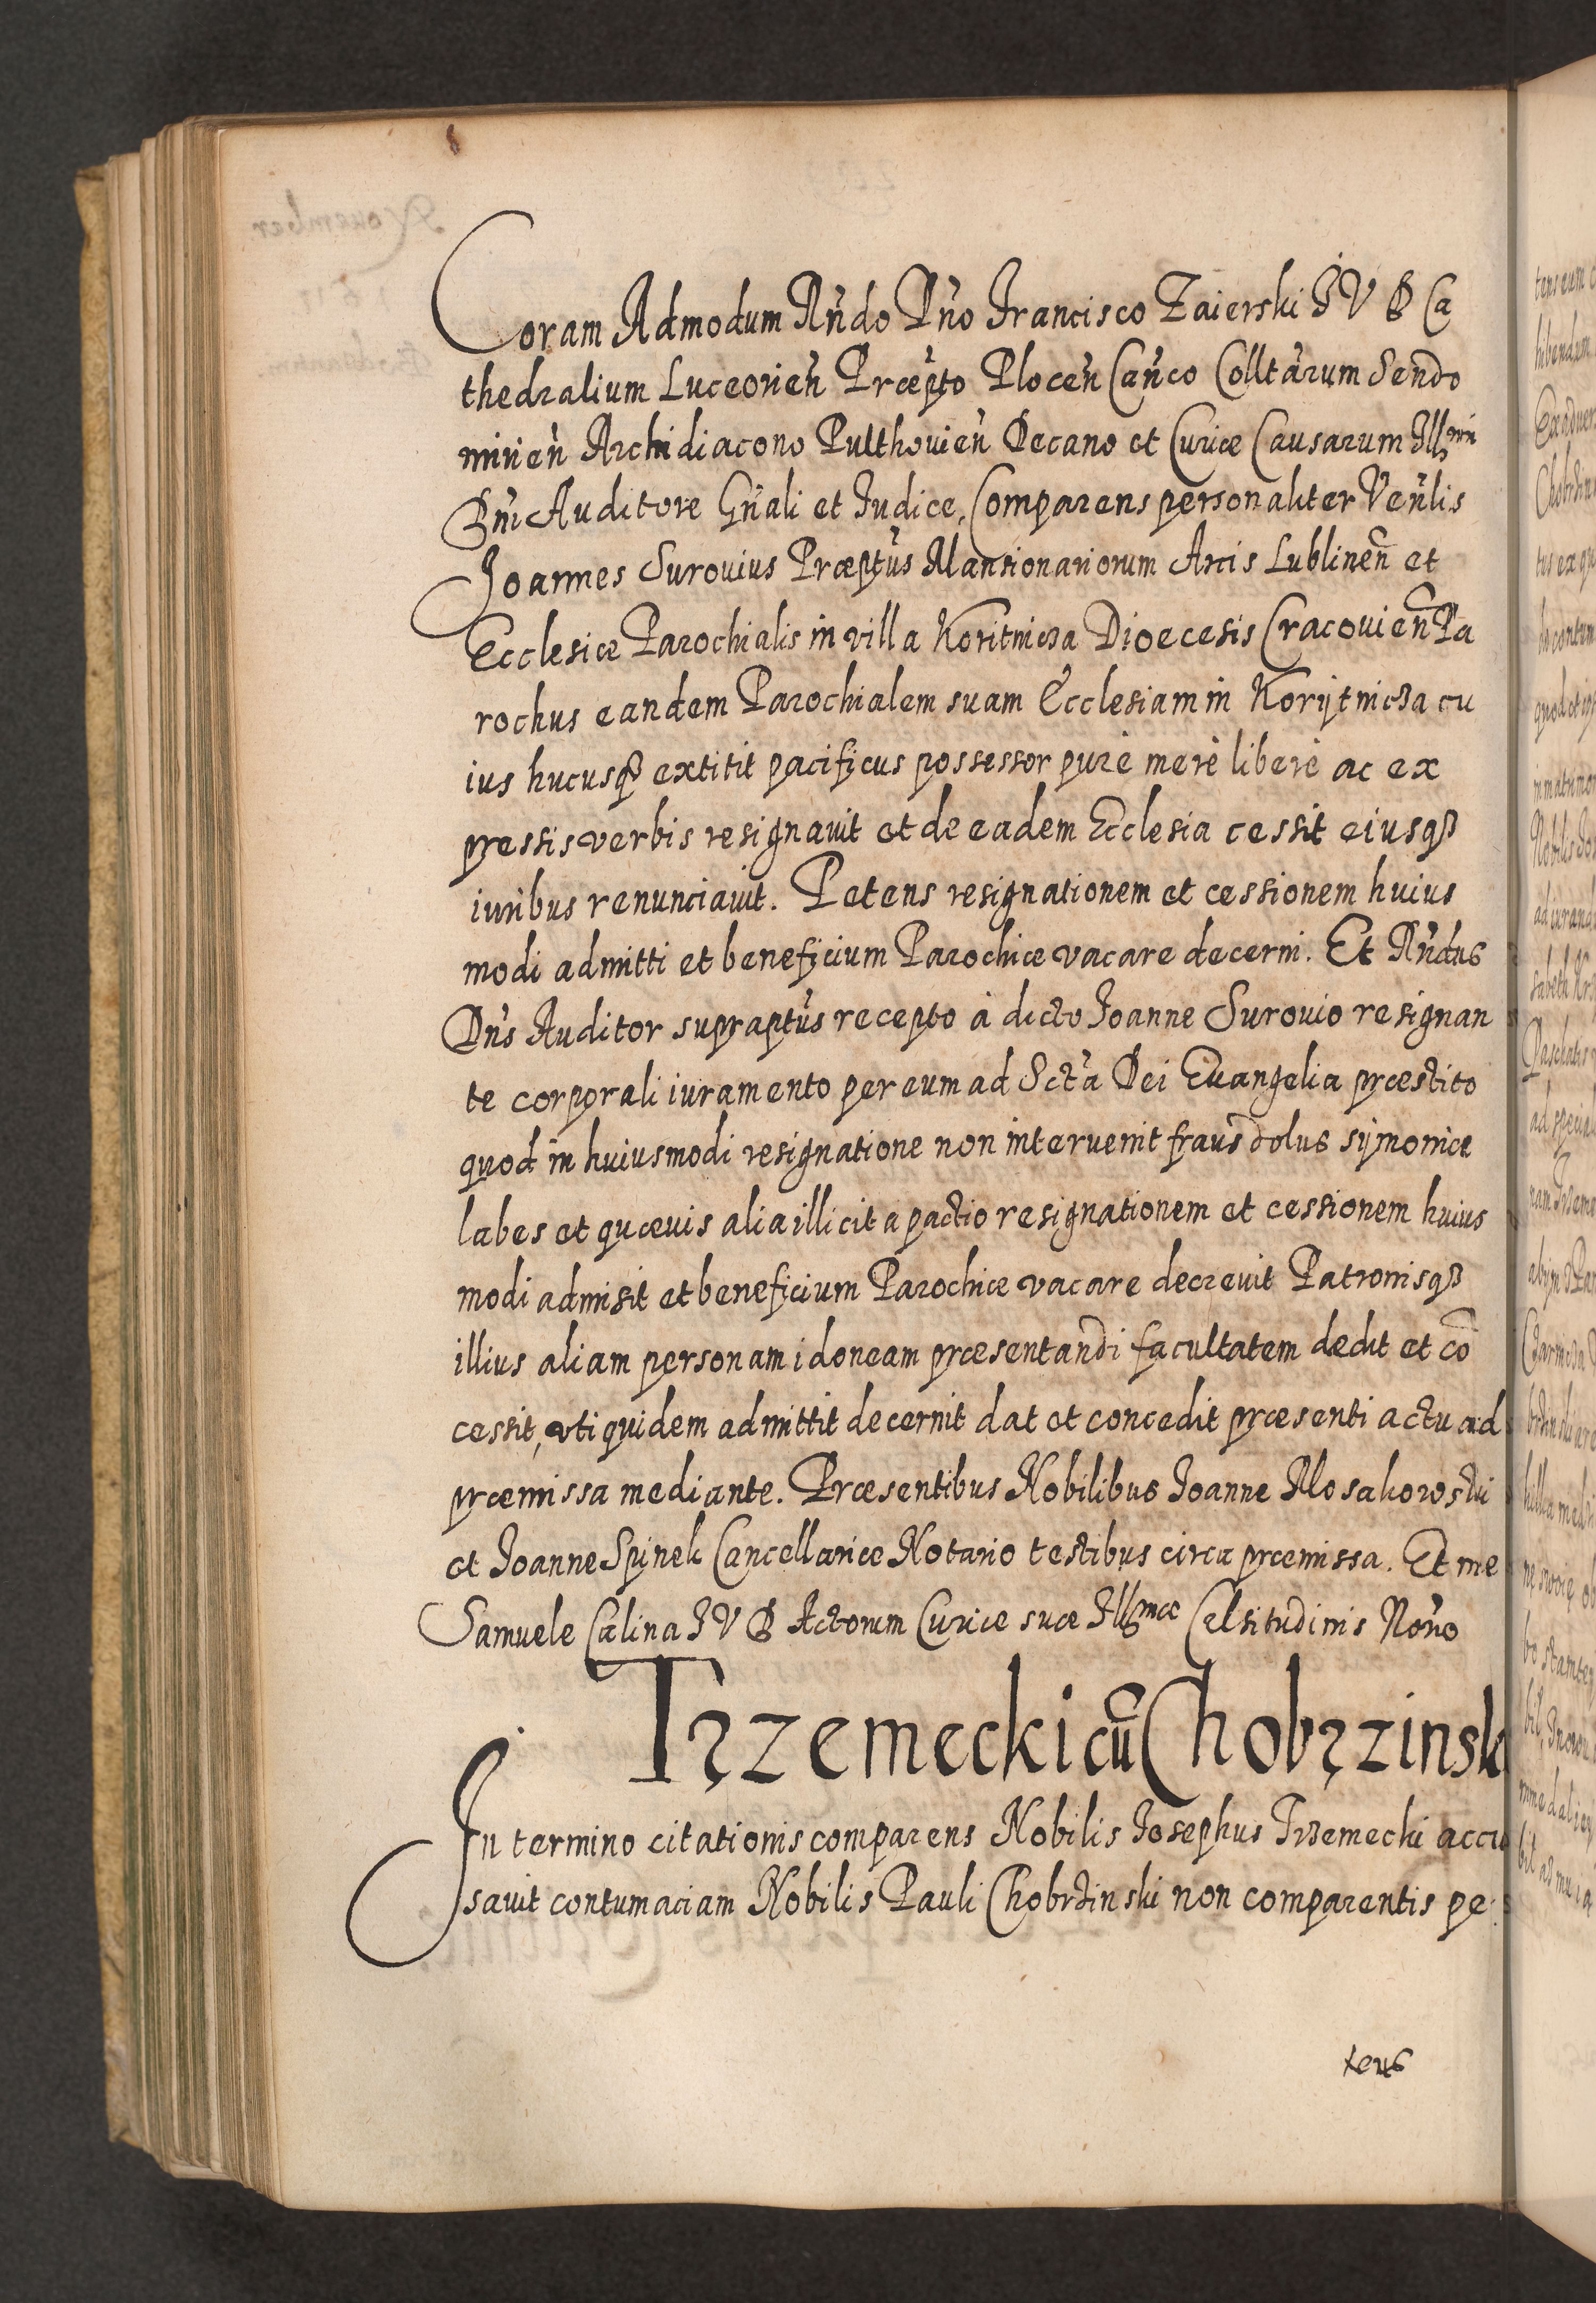 Coram Admodum Rńdo Dńo Francisco Zaierski I V D Ca
thedralium Luceorień Præpto Ploceń Cańco Colltarum Sendo
mirień Archidiacono Pulthouień Decano et Curiæ Causarum Illmi
Dńi Auditore Gńali et Iudice, Comparens personaliter Veńlis
Joannes Surouius Præptus Mansionariorum Arcis Lublineñ et
Ecclesiæ Parochialis in villa Koritnicza Dioecesis Cracouieñ Pa
rochus eandem Parochialem suam Ecclesiam in Korÿtnicza cu
ius hucusq3 extitit pacificus possessor purè merè liberè ac ex
pressis verbis resignauit et de eadem Ecclesia cessit eiusq3
iuribus renunciauit. Petens resignationem et cessionem huius
modi admitti et beneficium Parochiæ vacare decerni. Et Rńdus
Dńs Auditor supraptus recepto à dicto Joanne Surouio resignan
te corporali iuramento per eum ad Scta Dei Euangelia præstito
quod in huiusmodi resignatione non interuenit fraus dolus sÿmoniæ
labes et quæuis alia illicita pactio resignationem et cessionem huius
modi admisit et beneficium Parochiæ vacare decreuit Patronisq3
illius aliam personam idoneam præsentandi facultatem dedit et cõ
cessit, vti quidem admittit decernit dat et concedit præsenti actu ad
præmissa mediante. Præsentibus Nobilibus Joanne Mosakorostki
et Joanne Spinek Cancellariæ Notario testibus circa præmissa. Et me
Samuele Calina I V D Actorum Curiæ suæ Illmæ Celsitudinis Nońo
Trzemecki cũ Chobrzinsk
In termino citationis comparens Nobilis Josephus Trzemecki accu
sauit contumaciam Nobilis Pauli Chobrzinski non comparentis pe
tens